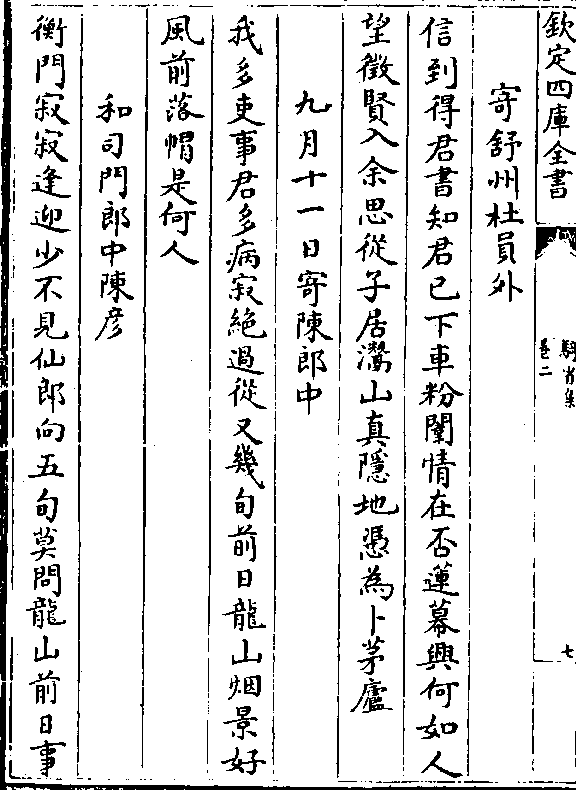 欽定四庫全書
騎省集
卷二
七
寄舒州杜員外
信到得君書知君已下車粉闈情在否蓮幕興何如人
望徵賢入余思從子居灊山真隱地憑為卜茅廬
九月十一日寄陳郎中
我多吏事君多病寂絶過從又幾旬前日龍山烟景好
風前落帽是何人
和司門郎中陳彦
衡門寂寂逢迎少不見仙郎向五旬莫問龍山前日事